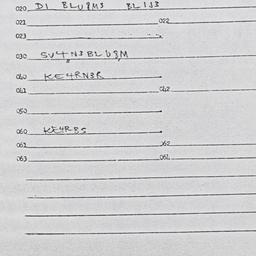 020 DI BLU8M3 BLIJ3
021 022
023
030 SU4N3BLU8M
040 KE4RN3R
041 042
050
060 KE4RBS
061 062
063 064